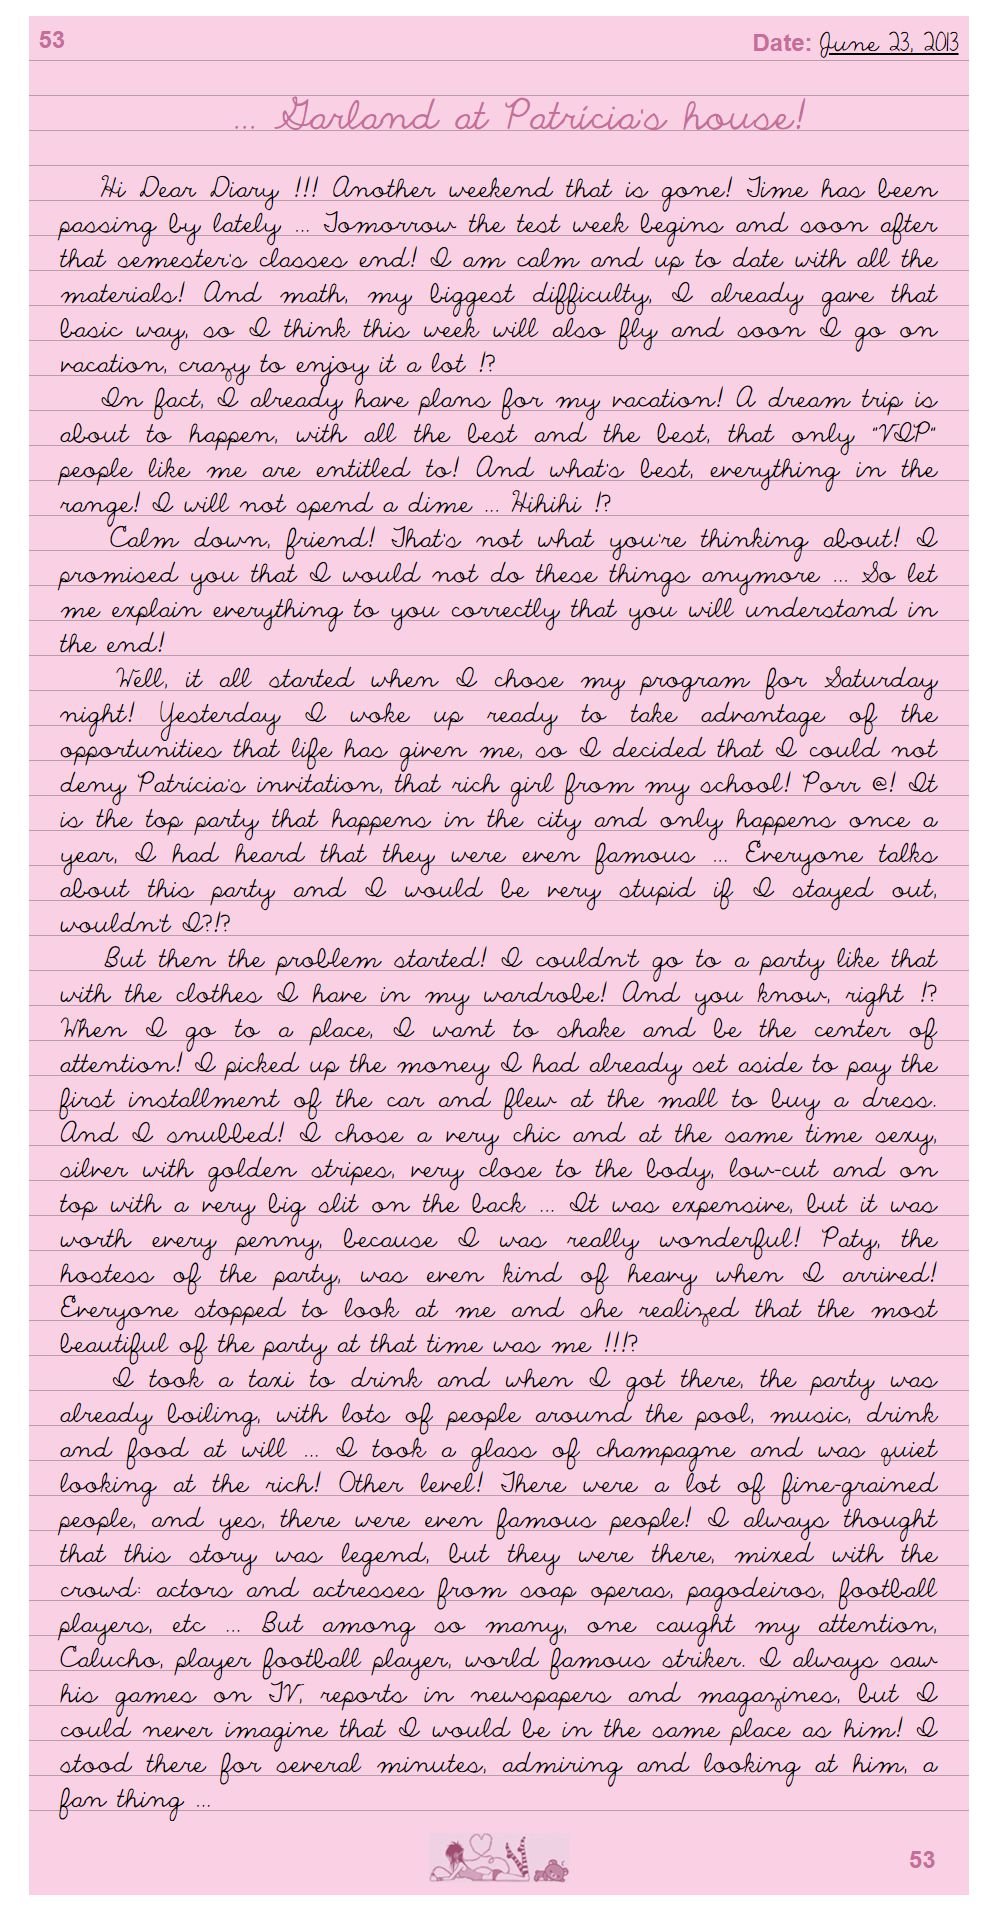 53
Date: June 23, 2013
... Garland at Patrícia's house!
Hi Dear Diary !!! Another weekend that is gone! Time has been
passing by lately ... Tomorrow the test week begins and soon after
that semester's classes end! I am calm and up to date with all the
materials! And math, my biggest difficulty, I already gave that
basic way, so I think this week will also fly and soon I go on
vacation, crazy to enjoy it a lot !?
In fact, I already have plans for my vacation! A dream trip is
about to happen, with all the best and the best, that only "VIP"
people like me are entitled to! And what's best, everything in the
range! I will not spend a dime ... Hihihi !?
Calm down, friend! That's not what you're thinking about! I
promised you that I would not do these things anymore ... So let
me explain everything to you correctly that you will understand in
the end!
Well, it all started when I chose my program for Saturday
night! Yesterday I woke up ready to take advantage of the
opportunities that life has given me, so I decided that I could not
deny Patrícia's invitation, that rich girl from my school! Porr @! It
is the top party that happens in the city and only happens once a
year, I had heard that they were even famous ... Everyone talks
about this party and I would be very stupid if I stayed out,
wouldn't I?!?
But then the problem started! I couldn't go to a party like that
with the clothes I have in my wardrobe! And you know, right !?
When I go to a place, I want to shake and be the center of
attention! I picked up the money I had already set aside to pay the
first installment of the car and flew at the mall to buy a dress.
And I snubbed! I chose a very chic and at the same time sexy,
silver with golden stripes, very close to the body, low-cut and on
top with a very big slit on the back ... It was expensive, but it was
worth every penny, because I was really wonderful! Paty, the
hostess of the party, was even kind of heavy when I arrived!
Everyone stopped to look at me and she realized that the most
beautiful of the party at that time was me !!!?
I took a taxi to drink and when I got there, the party was
already boiling, with lots of people around the pool, music, drink
and food at will ... I took a glass of champagne and was quiet
looking at the rich! Other level! There were a lot of fine-grained
people, and yes, there were even famous people! I always thought
that this story was legend, but they were there, mixed with the
crowd: actors and actresses from soap operas, pagodeiros, football
players, etc ... But among so many, one caught my attention,
Calucho, player football player, world famous striker. I always saw
his games on TV, reports in newspapers and magazines, but I
could never imagine that I would be in the same place as him! I
stood there for several minutes, admiring and looking at him, a
fan thing ...
53